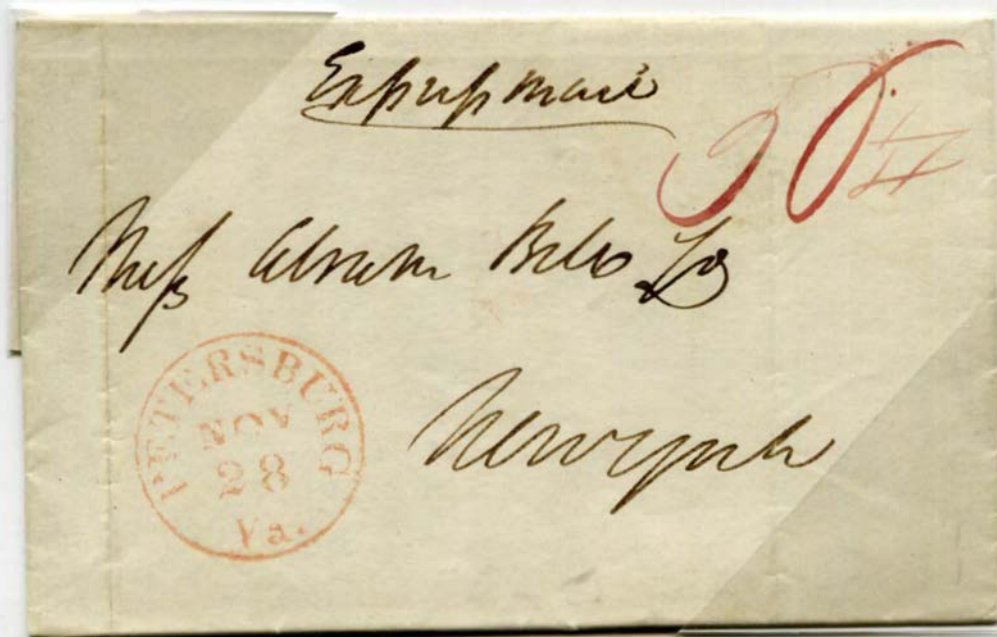 Express mail
Mess Abraham Bell & Co
New york
PETERSBURG
NOV
28
Va.